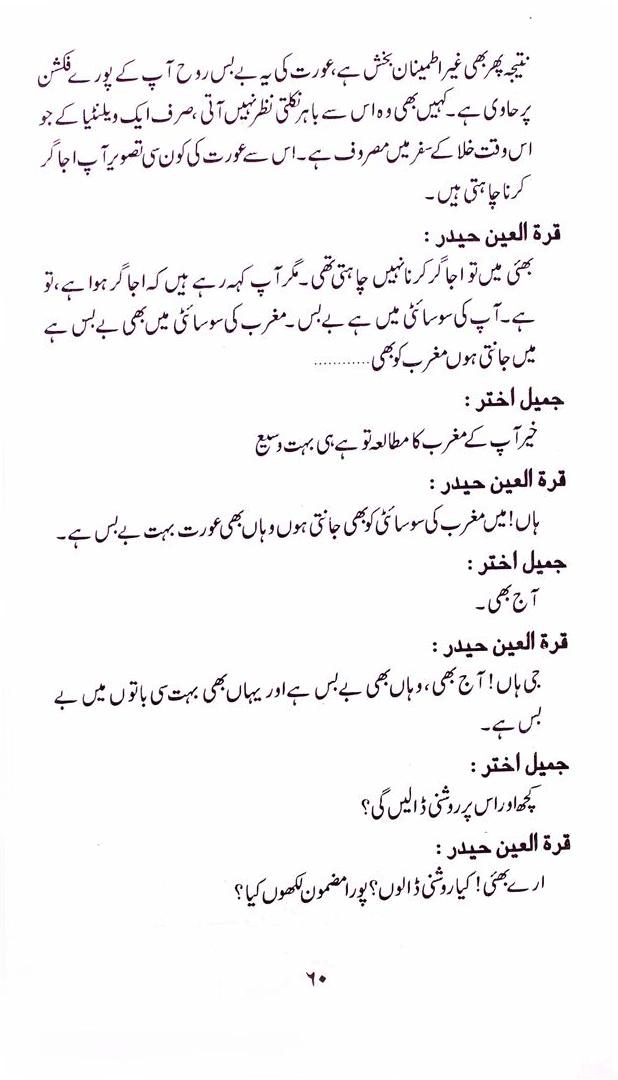 نتیجہ پھر بھی غیر اطمینان بخش ہے، عورت کی یہ بے بس روح آپ کے پورے فکشن
پر حاوی ہے۔ کہیں بھی وہ اس سے باہر نکلتی نظر نہیں آتی، صرف ایک ویلنٹیا کے جو
اس وقت خلا کے سفر میں مصروف ہے۔ اس سے عورت کی کون سی تصویر آپ اجاگر
کرنا چاہتی ہیں۔
قرۃ العین حیدر :
بھئی میں تو اجاگر کرنا نہیں چاہتی تھی۔ مگر آپ کہہ رہے ہیں کہ اجاگر ہوا ہے، تو
ہے۔ آپ کی سوسائٹی میں ہے بے بس۔ مغرب کی سوسائٹی میں بھی بے بس ہے
میں جانتی ہوں مغرب کو بھی ............
جمیل اختر :
خیر آپ کے مغرب کا مطالعہ تو ہے ہی بہت وسیع
قرۃ العین حیدر :
ہاں! میں مغرب کی سوسائٹی کو بھی جانتی ہوں وہاں بھی عورت بہت بے بس ہے۔
جمیل اختر :
آج بھی۔
قرۃ العین حیدر :
جی ہاں! آج بھی، وہاں بھی بے بس ہے اور یہاں بھی بہت سی باتوں میں بے
بس ہے۔
جمیل اختر :
کچھ اور اس پر روشنی ڈالیں گی؟
قرۃ العین حیدر :
ارے بھئی! کیا روشنی ڈالوں؟ پورا مضمون لکھوں کیا؟
۶۰